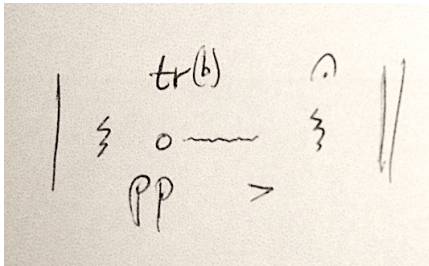 tr(b)
pp >